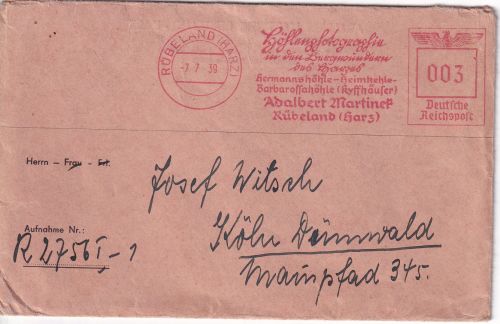 RÜBELAND (HARZ)
-7.7.39
Höhlenphotographie
in den Bergwundern
des Harzes
Hermannshöhle-Heimkehle-
Barbarossahöhle (Kyffhäuser)
Adalbert Martinek
Rübeland (Harz)
003
Deutsche
Reichspost
Herrn - Frau - Frl.
Josef Witsch
Aufnahme Nr.:
R 2756 I - 1
Köln Dünnwald
Mainpfad 345.